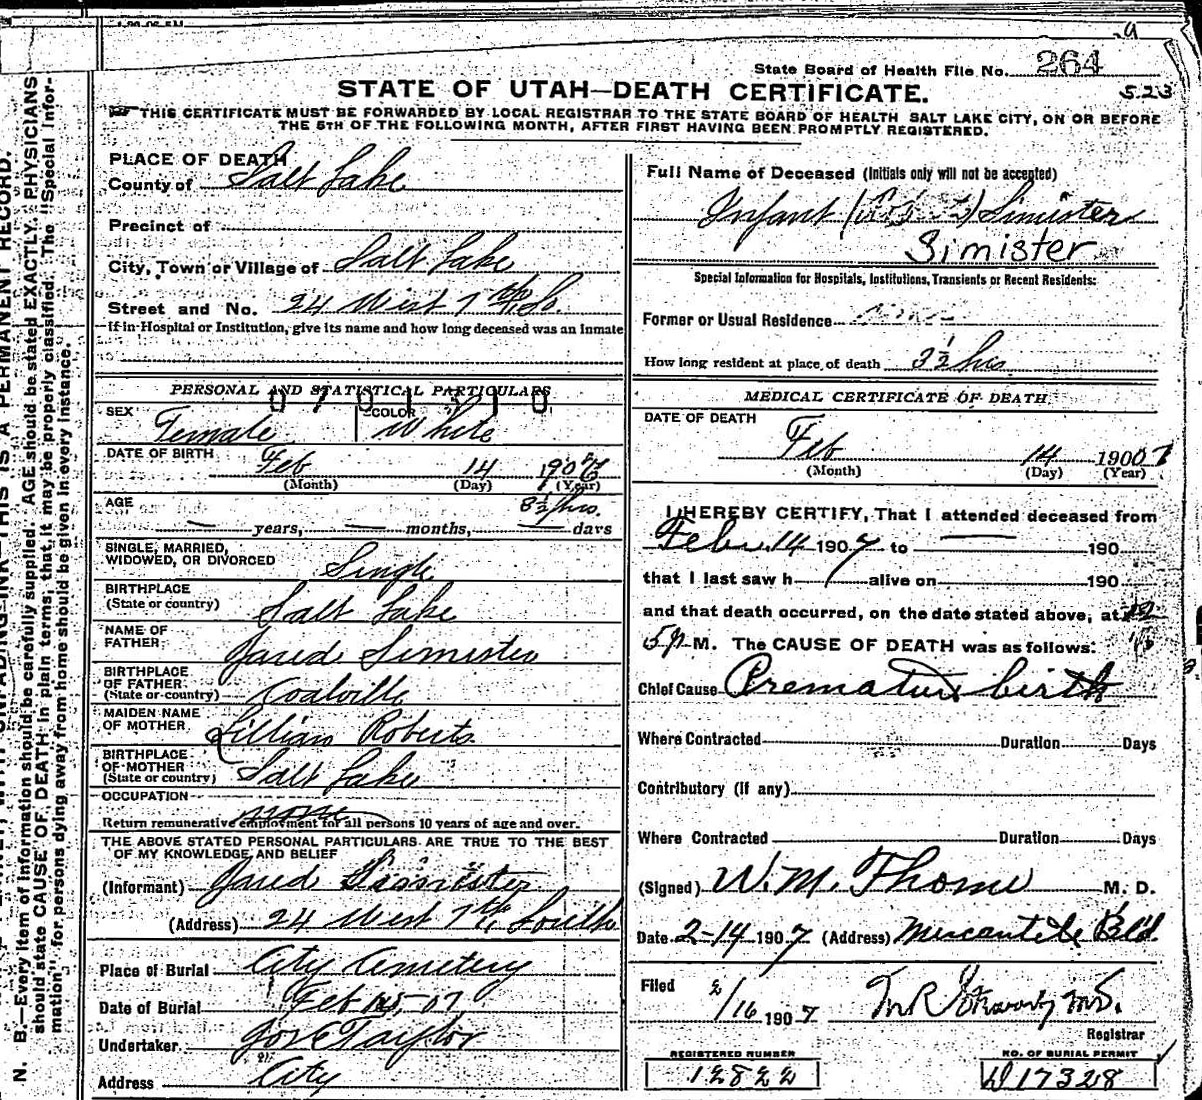 a
State Board of Health File No. 264
STATE OF UTAH—DEATH CERTIFICATE.
523
THIS CERTIFICATE MUST BE FORWARDED BY LOCAL REGISTRAR TO THE STATE BOARD OF HEALTH SALT LAKE CITY, ON OR BEFORE
THE 5TH OF THE FOLLOWING MONTH, AFTER FIRST HAVING BEEN PROMPTLY REGISTERED.
PLACE OF DEATH
County of Salt Lake
Precinct of
City, Town or Village of Salt Lake
Street and No. 24 West 7th So.
If in Hospital or Institution, give its name and how long deceased was an inmate
PERSONAL AND STATISTICAL PARTICULARS
SEX Female COLOR White
DATE OF BIRTH Feb 14 1907
(Month) (Day) (Year)
AGE 3½ hrs.
— years, — months, — days
SINGLE, MARRIED,
WIDOWED, OR DIVORCED Single
BIRTHPLACE
(State or country) Salt Lake
NAME OF
FATHER Jared Simister
BIRTHPLACE
OF FATHER
(State or country) Coalville
MAIDEN NAME
OF MOTHER Lillian Roberts
BIRTHPLACE
OF MOTHER
(State or country) Salt Lake
OCCUPATION none
Return remunerative employment for all persons 10 years of age and over.
THE ABOVE STATED PERSONAL PARTICULARS ARE TRUE TO THE BEST
OF MY KNOWLEDGE AND BELIEF
(Informant) Jared Simister
(Address) 24 West 7th South
Place of Burial City Cemetery
Date of Burial Feb 15-07
Undertaker Jos E Taylor
Address City
Full Name of Deceased (Initials only will not be accepted)
Infant Simister
Simister
Special Information for Hospitals, Institutions, Transients or Recent Residents:
Former or Usual Residence
How long resident at place of death 3½ hrs
MEDICAL CERTIFICATE OF DEATH
DATE OF DEATH
Feb 14 1907
(Month) (Day) (Year)
I HEREBY CERTIFY, That I attended deceased from
Feb. 14 1907 to — 190
that I last saw h alive on 190
and that death occurred, on the date stated above, at 12
M. The CAUSE OF DEATH was as follows:
Chief Cause Premature birth
Where Contracted Duration Days
Contributory (if any)
Where Contracted Duration Days
(Signed) W. M. Thome M. D.
Date 2-14 1907 (Address) Mercantile Bld
Filed 2/16 1907 M.D.
Registrar
REGISTERED NUMBER
12822
NO. OF BURIAL PERMIT
D 17328
N. B.—Every item of information should be carefully supplied. AGE should be stated EXACTLY. PHYSICIANS
should state CAUSE OF DEATH in plain terms, that it may be properly classified. The "Special Infor-
mation" for persons dying away from home should be given in every instance.
WITH UNFADING INK—THIS IS A PERMANENT RECORD.